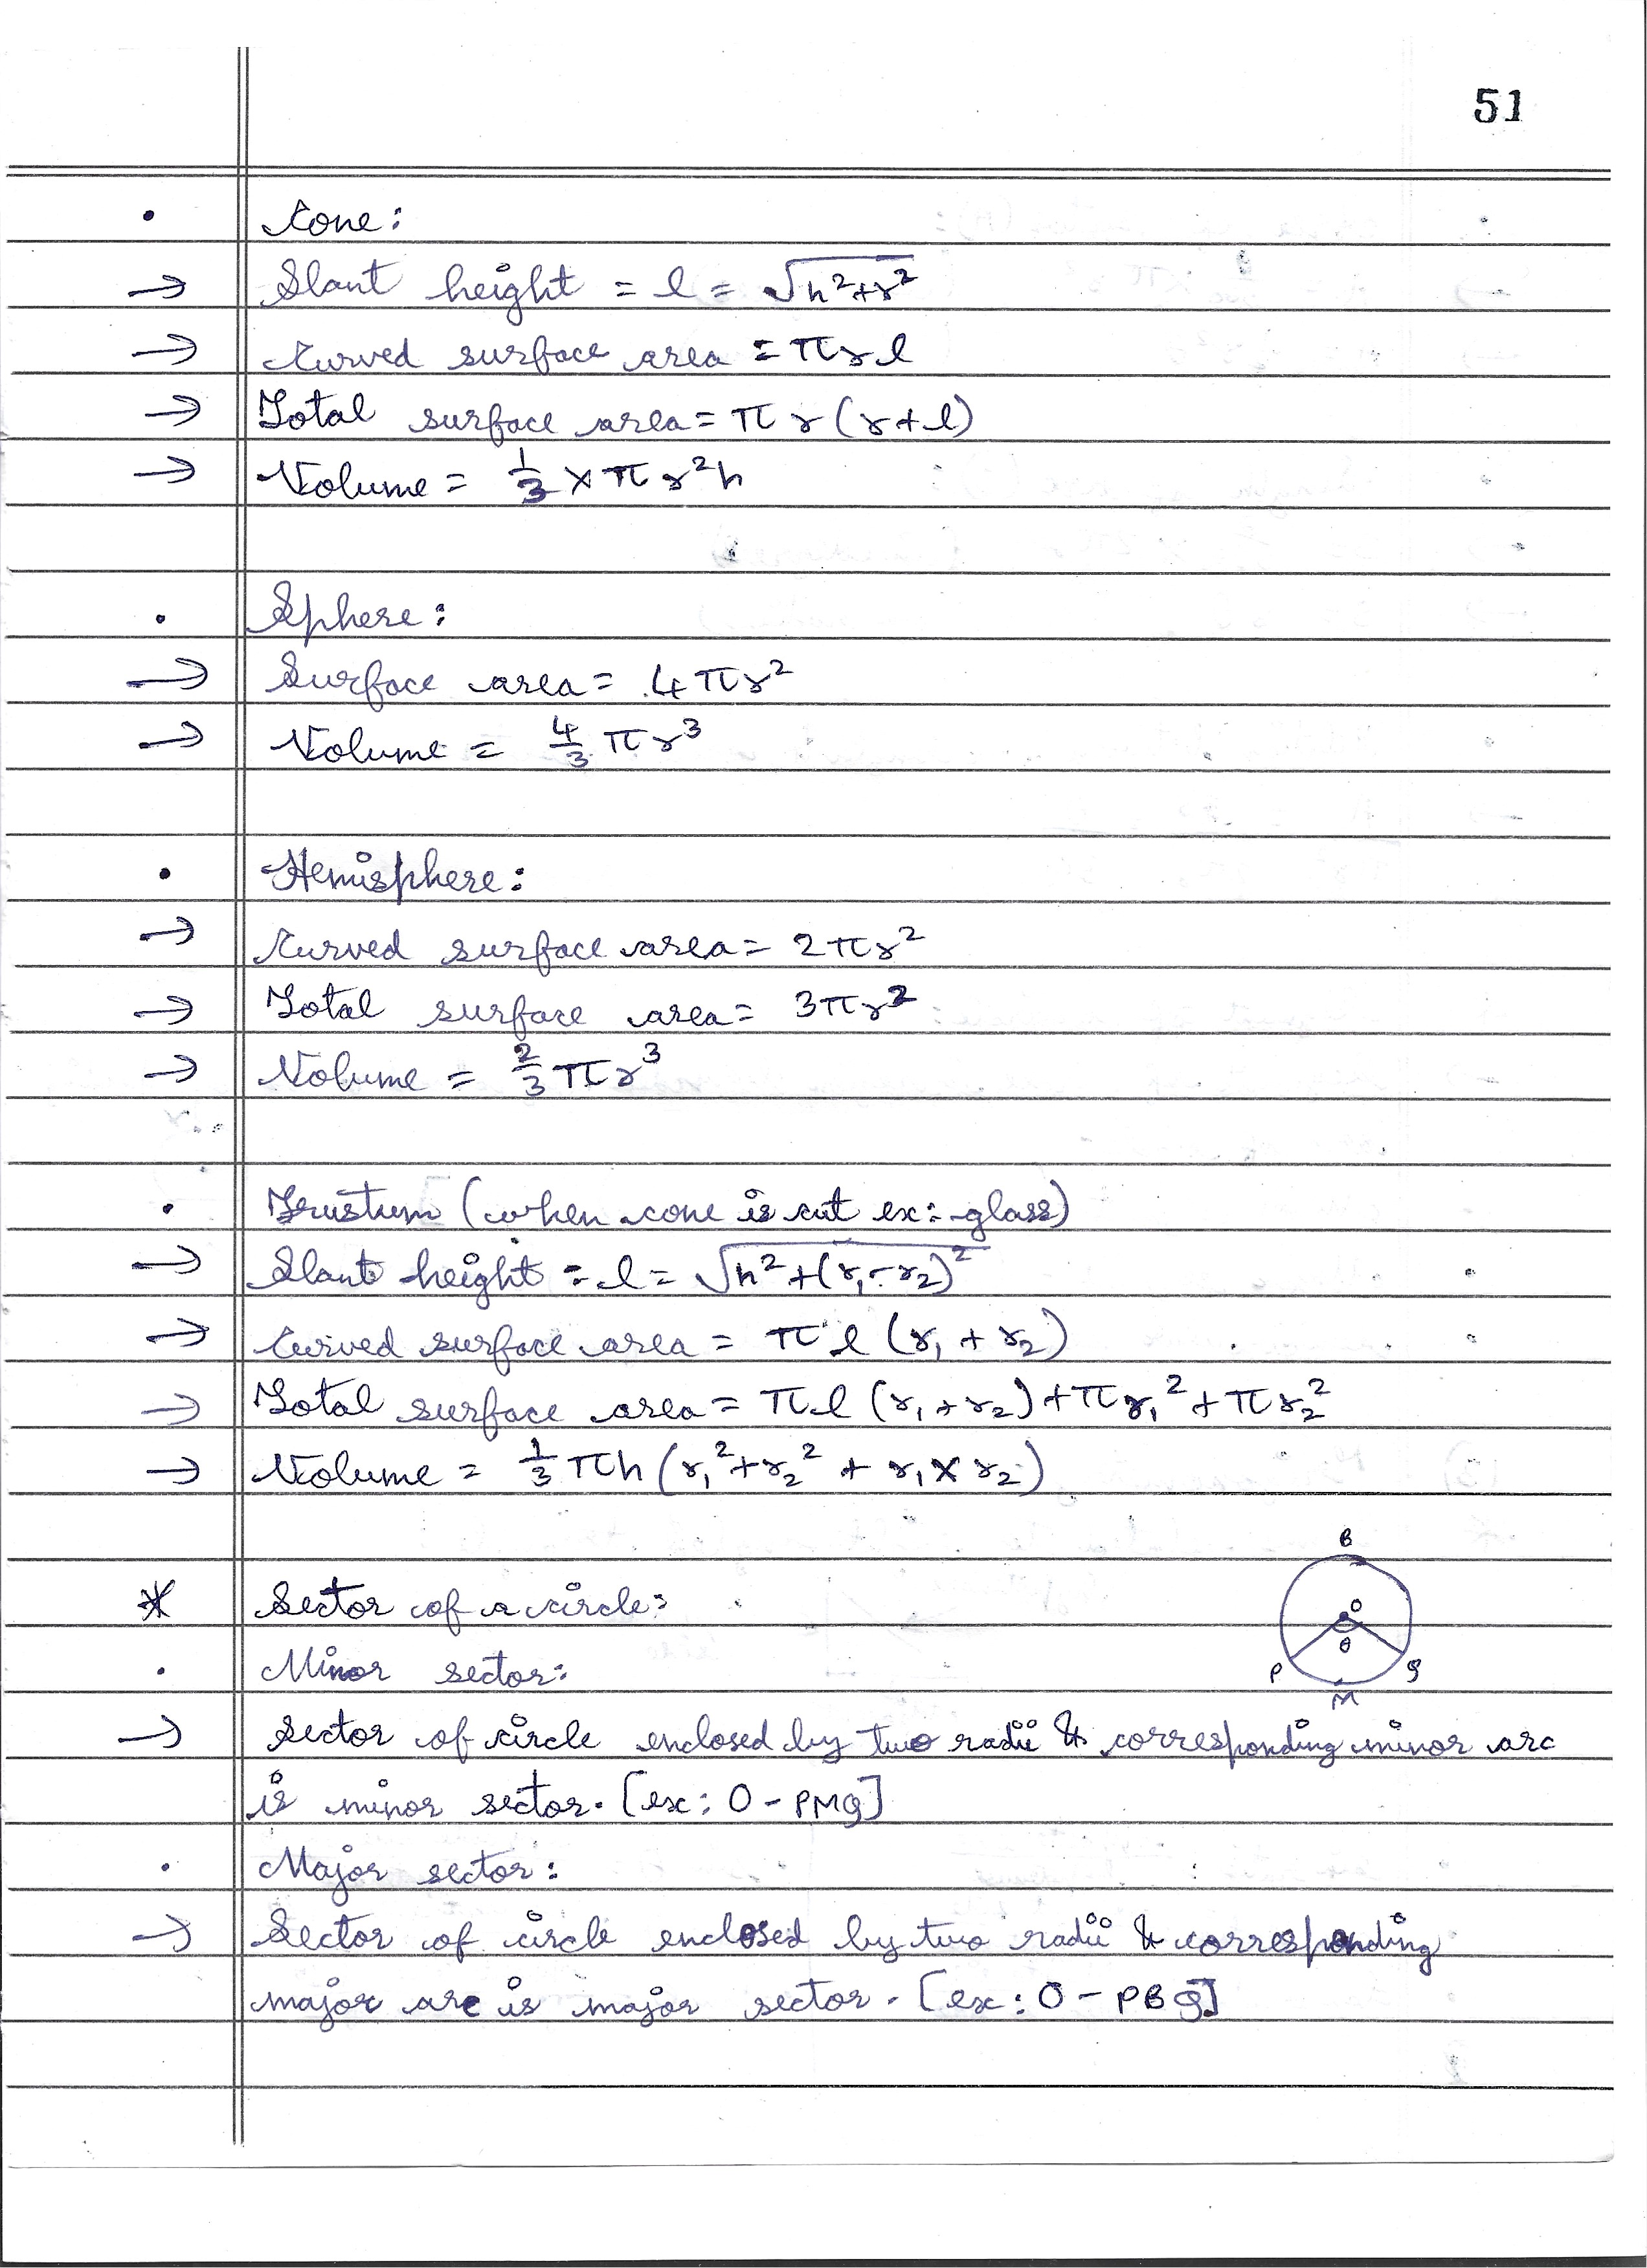 51
• Cone:
→ Slant height = l = √h²+r²
→ Curved surface area = πrl
→ Total surface area = πr(r+l)
→ Volume = 1/3 × πr²h
• Sphere:
→ Surface area = 4πr²
→ Volume = 4/3 πr³
• Hemisphere:
→ Curved surface area = 2πr²
→ Total surface area = 3πr²
→ Volume = 2/3 πr³
• Frustum (when cone is cut ex:- glass)
→ Slant height = l = √h²+(r₁-r₂)²
→ Curved surface area = πl (r₁ + r₂)
→ Total surface area = πl (r₁+r₂)+πr₁²+πr₂²
→ Volume = 1/3 πh (r₁²+r₂² + r₁×r₂)
B
* Sector of a circle:
O
θ
• Minor sector:
P
Q
M
→ Sector of circle enclosed by two radii & corresponding minor arc
is minor sector. [ex: O-PMQ]
• Major sector:
→ Sector of circle enclosed by two radii & corresponding
major arc is major sector. [ex: O-PBQ]